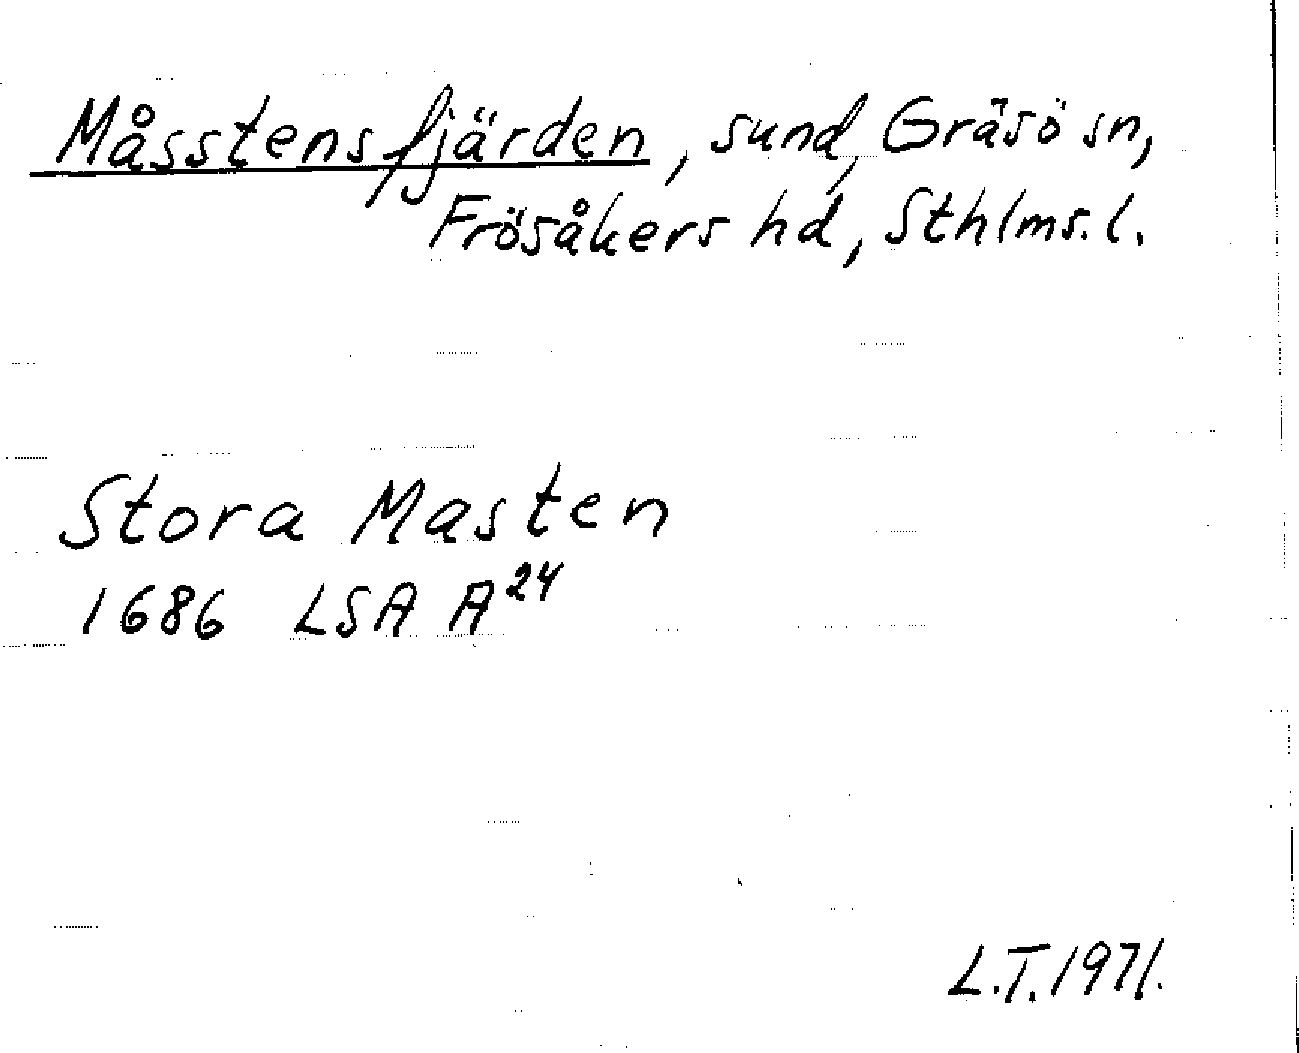 Måsstensfjärden, sund, Gräsö sn,
Frösåkers hd, Sthlms. l.
Stora Masten
1686 LSA A24
L.T. 1971.